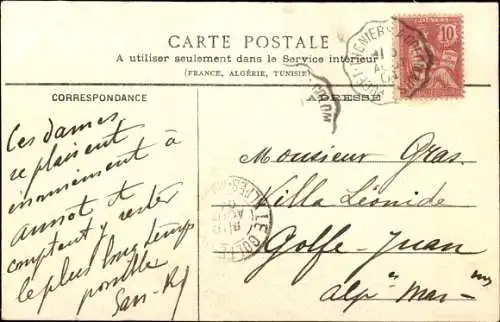 CARTE POSTALE
A utiliser seulement dans le Service intérieur
(FRANCE, ALGÉRIE, TUNISIE)
CORRESPONDANCE
ADRESSE
10
POSTES
Ces dames
se plaisent
énormément à
annot et
comptent y rester
le plus longtemps
possible
Monsieur Gras
Villa Léonide
Golfe-Juan
Alpes Mar-mes
LE GOLFE